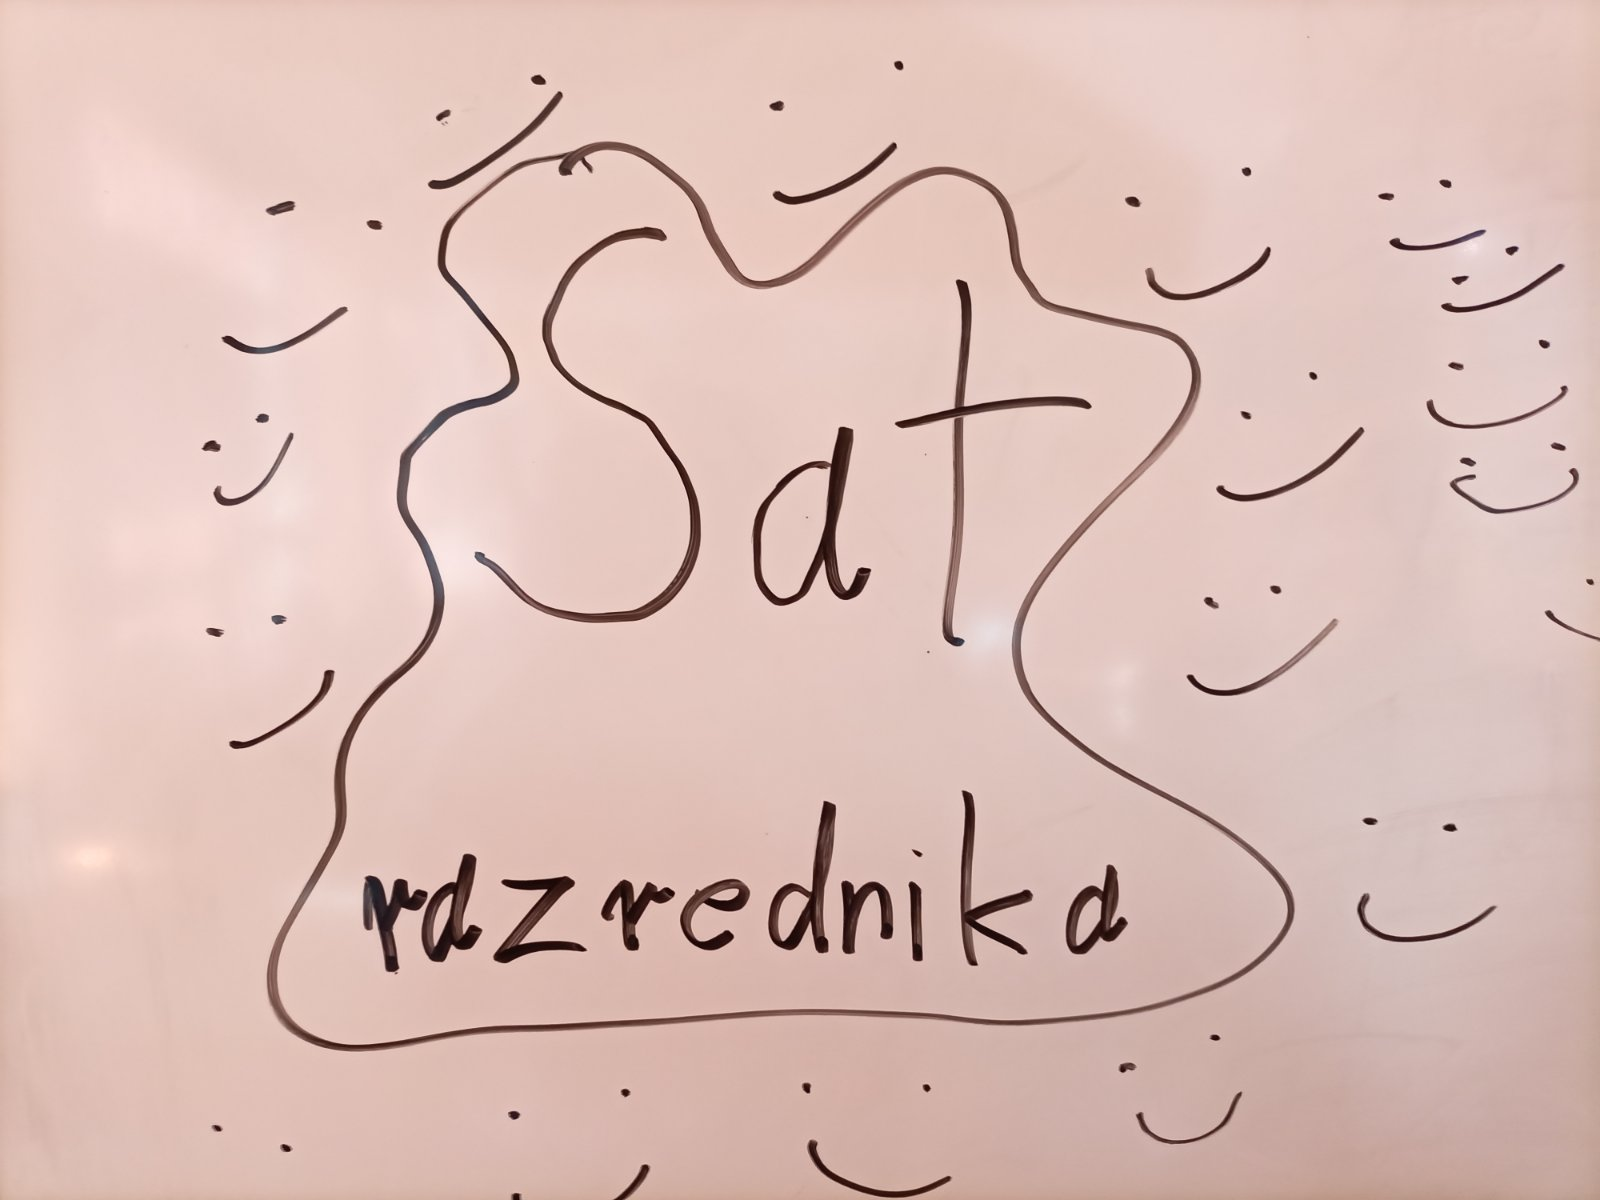 Sat
razrednika